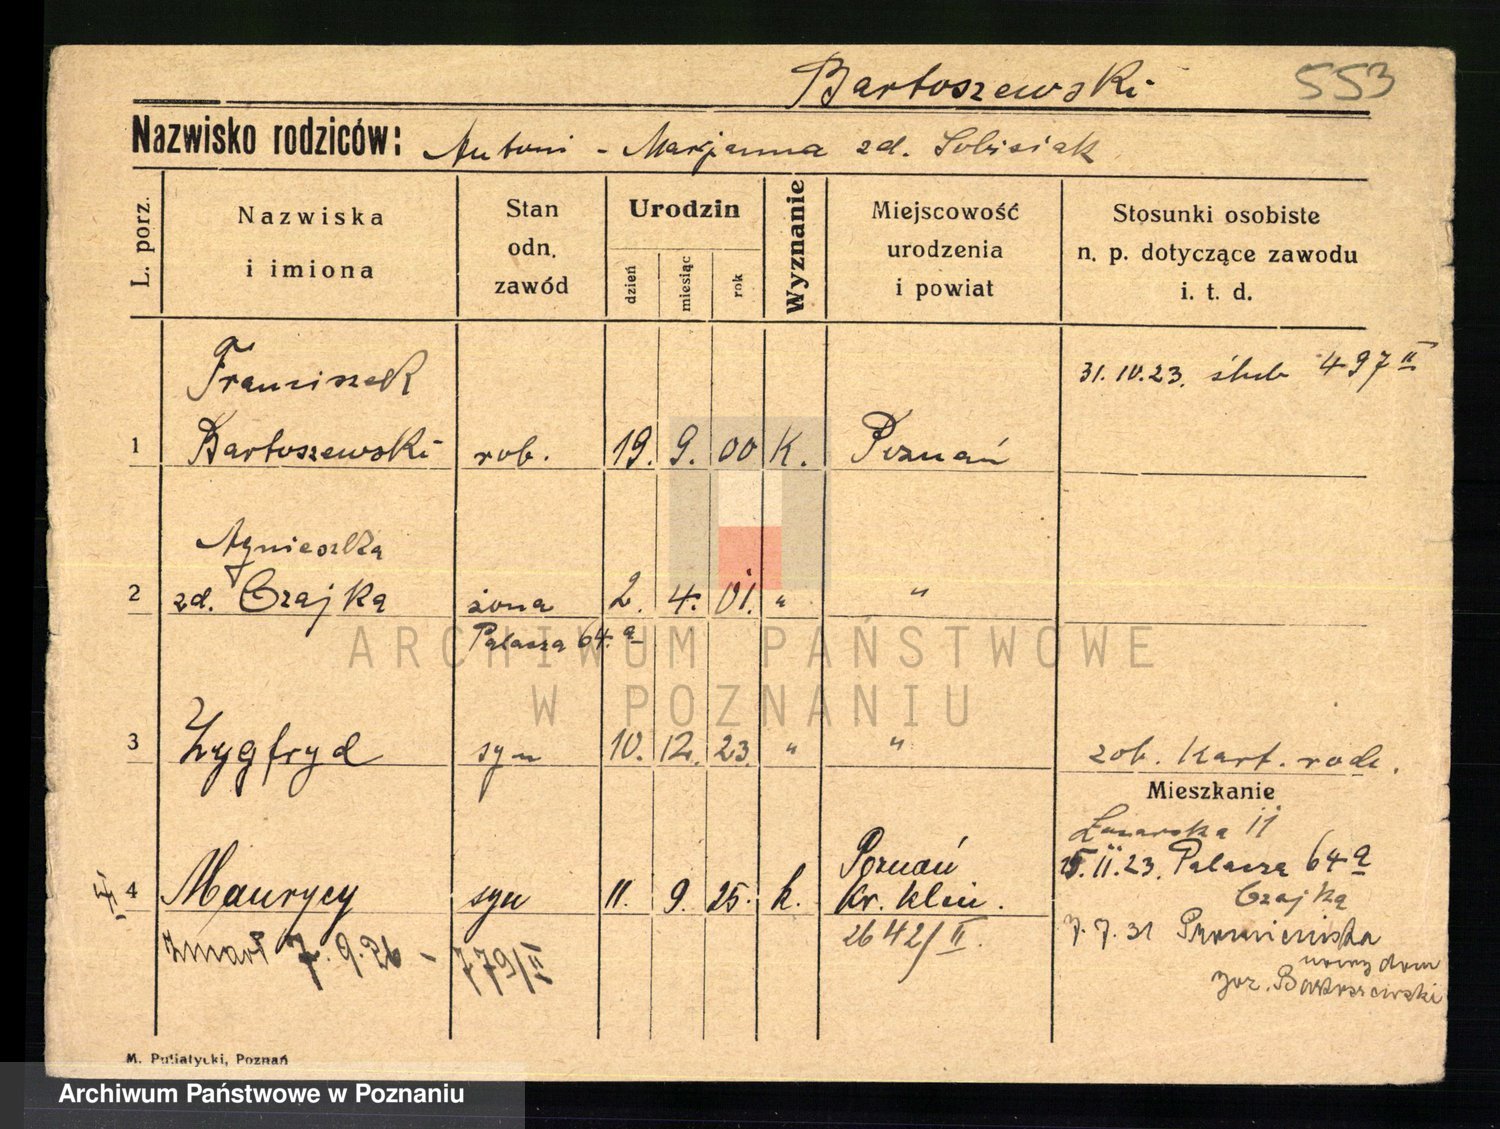 Bartoszewski 553
Nazwisko rodziców: Antoni - Marjanna zd. Sobisiak
L. porz.
Nazwiska
i imiona
Stan
odn.
zawód
Urodzin
dzień
miesiąc
rok
Wyznanie
Miejscowość
urodzenia
i powiat
Stosunki osobiste
n. p. dotyczące zawodu
i. t. d.
Franciszek 31. 10. 23. ślub 497 II
1 Bartoszewski rob. 19. 9. 00 K. Poznań
Agnieszka
2 zd. Czajka żona 2. 4. 01. " "
Palacza 64. a
3 Zygfryd syn 10. 12. 23. " "
zob. Kart. rodz.
Mieszkanie
Łazarska 11
15. II. 23. Palacza 64 a
Czajka
4 Maurycy syn 11. 9. 25. k. Poznań
kr. klin.
2642/II.
zmarł 7. 9. 26 - 779/II
7. 7. 31 Promienista
nowy dom
Bartoszewski
M. Putiatycki, Poznań
ARCHIWUM PAŃSTWOWE
W POZNANIU
Archiwum Państwowe w Poznaniu